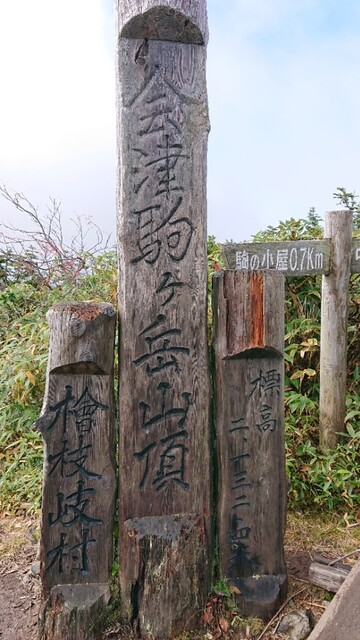 会津駒ヶ岳山頂
檜枝岐村
標高
二、一三二、四米
駒の小屋0.7Km